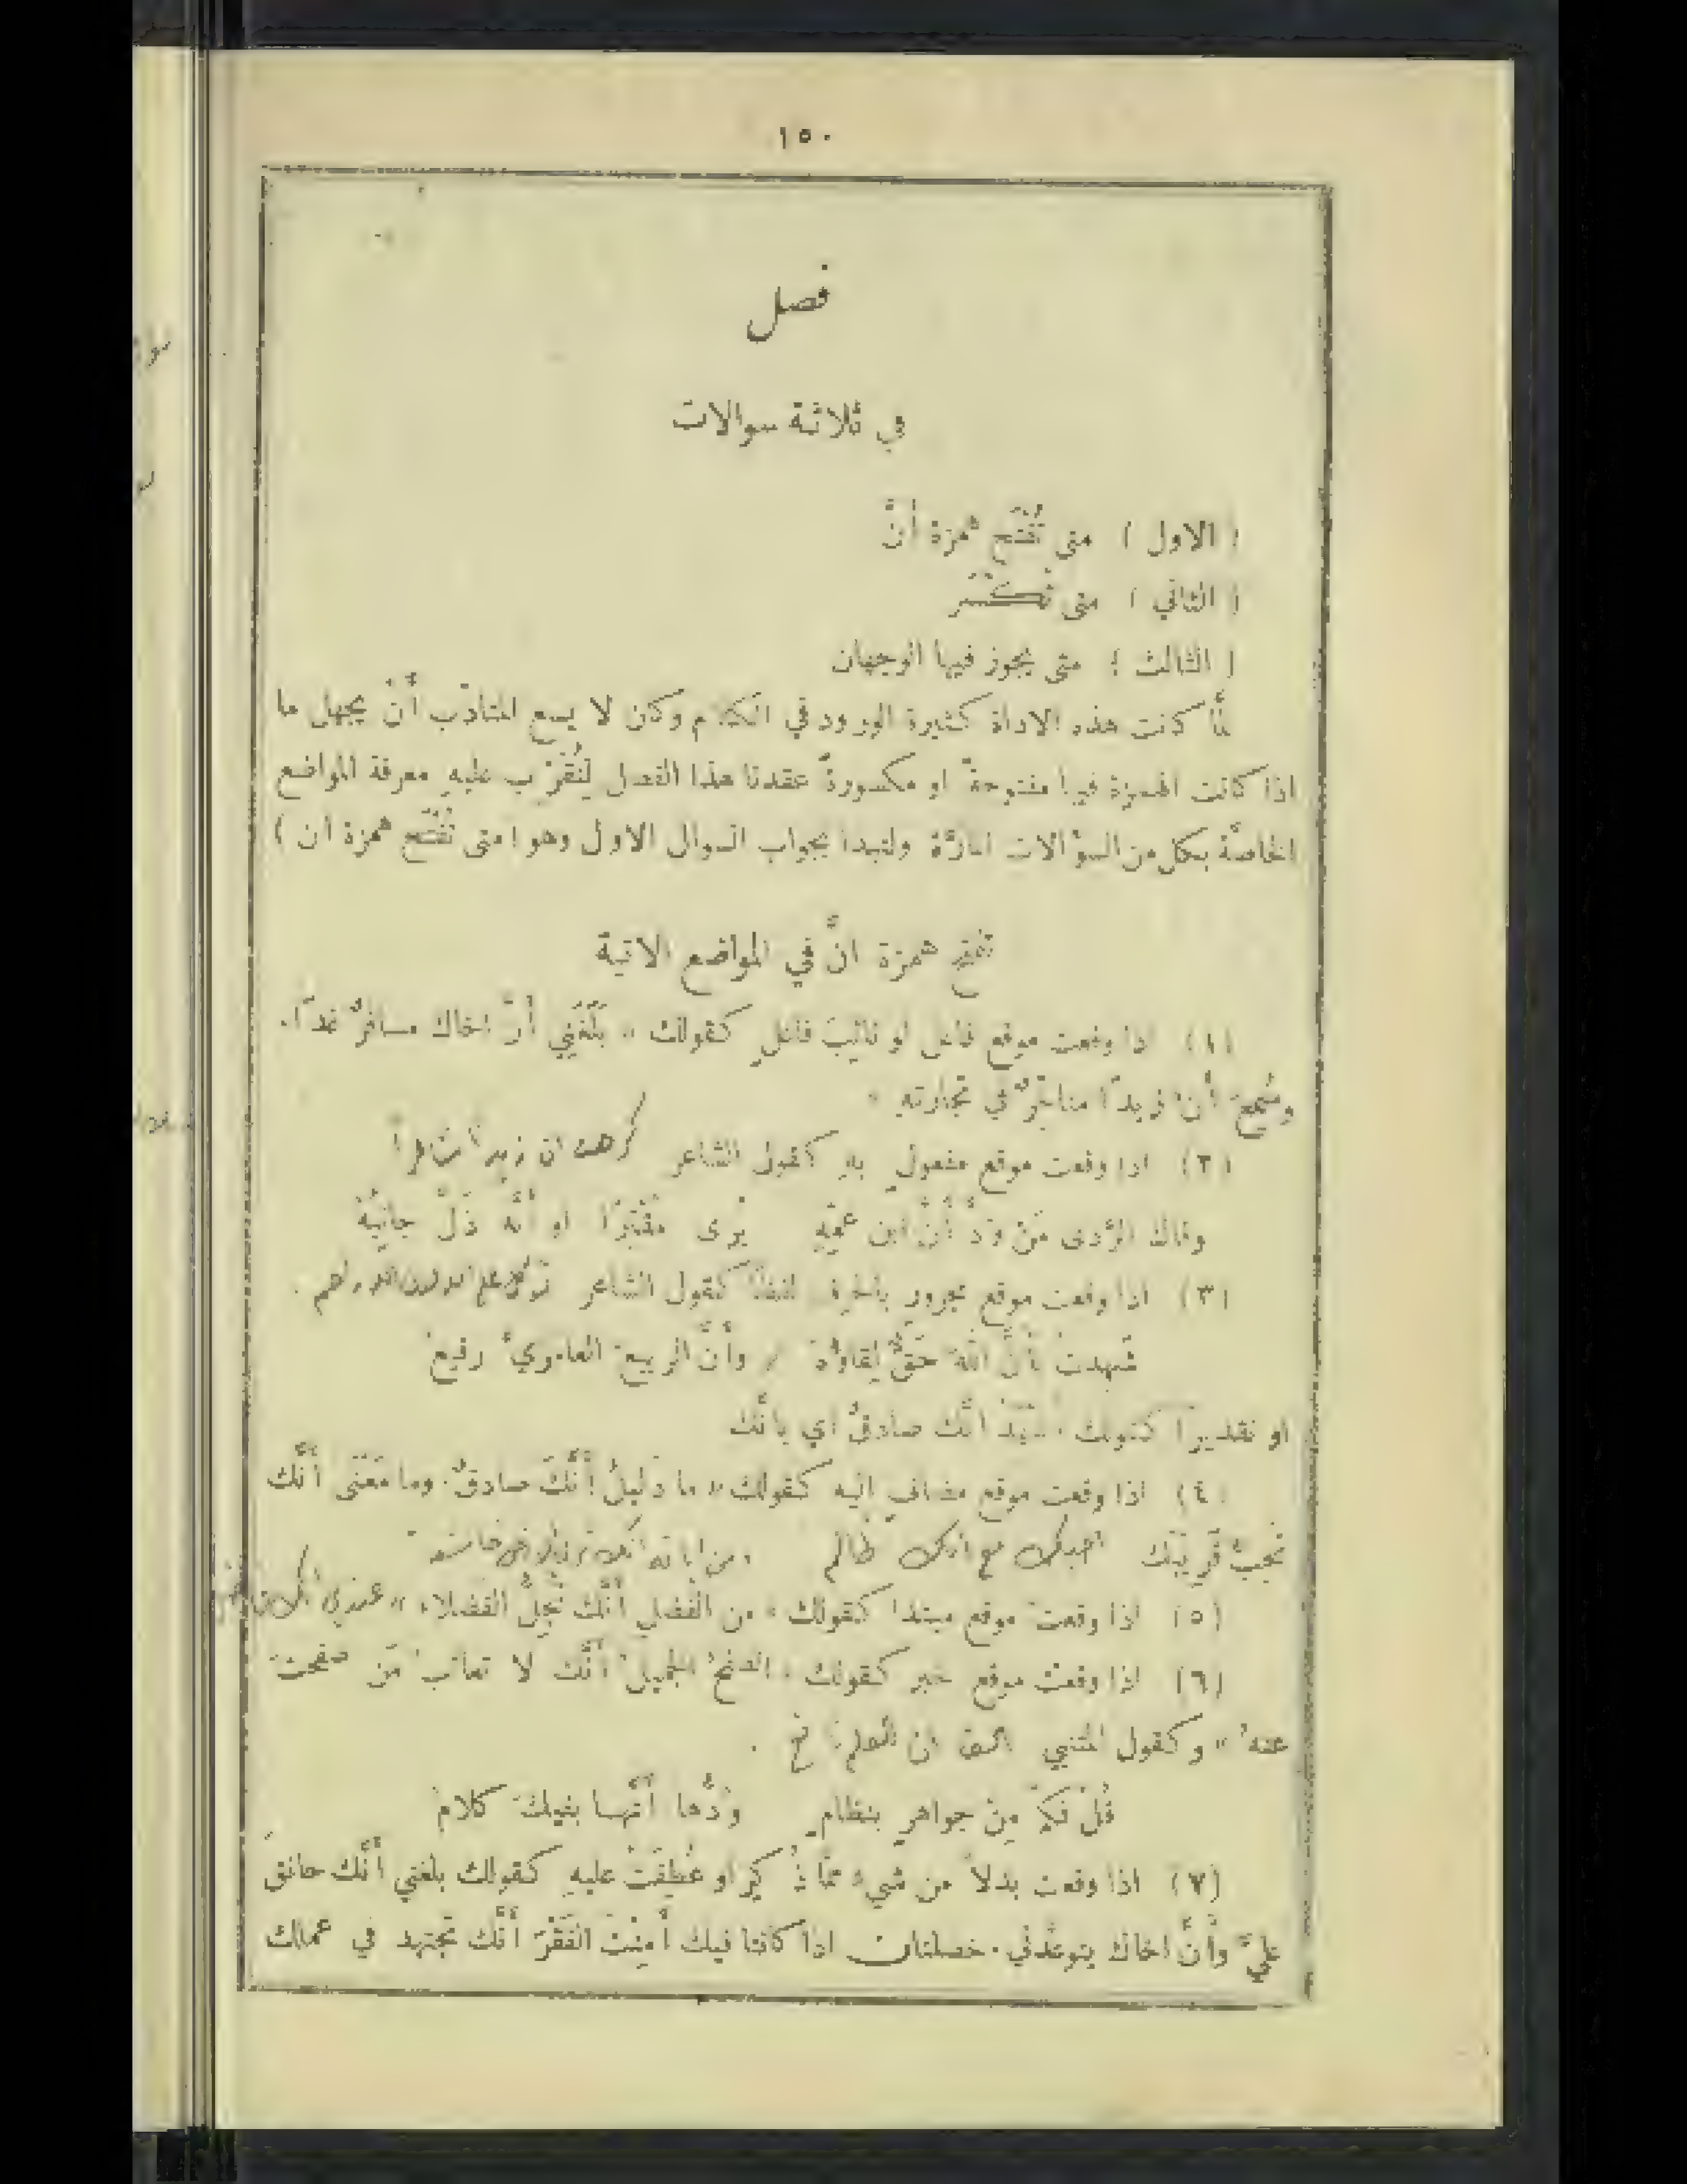 ١٥٠
فصل
في ثلاثة سوالات
( الاول ) متى تُفْتَح همزة أنَّ
( الثاني ) متى تُكْسَر
( الثالث ) متى يجوز فيها الوجهان
لمَّا كانت هذه الاداة كثيرة الورود في الكلام وكان لا يسع المتادّب أَنْ يجهل ما
اذا كانت الهمزة فيها مفتوحةً او مكسورةً عقدنا هذا الفصل لِنُقَرّب عليهِ معرفة المواضع
الخاصَّة بكل من السؤالات المارَّة ولنبدا بجواب السوال الاول وهو ( متى تُفْتَح همزة ان )
تفتح همزة انَّ في المواضع الاتية
(١) اذا وقعت موقع فاعل او نائبَ فاعلٍ كقولك « بَلَغَنِي أَنَّ اخاك مسافرٌ غدًا.
وسُمِعَ أَنَّ زيدًا مثابرٌ في تجارتهِ »
(٢) اذا وقعت موقع مفعولٍ بهِ كقول الشاعر كرهت ان زيداً
وقاك الرَّدى مَنْ وَدَّ أَنَّ ابن عمِّهِ يُرى مُقْتِرًا او أَنَّه ذَلَّ جانِبُهْ
(٣) اذا وقعت موقع مجرورٍ بالحرف لفظًا كقول الشاعر
شهدتُ بأَنَّ اللهَ حَقٌّ لِقاؤُهُ وأَنَّ الربيعَ العامريَّ رفيعُ
او تقديرًا كقولك انَّك صادقٌ اي بانَّك
(٤) اذا وقعت موقع مضافٍ اليه كقولك « ما دَليلُ أَنَّكَ صادقٌ. وما مَعْنَى أَنَّك
تُحِبُّ قَريبَك احبك مع انك ظالم
(٥) اذا وقعت موقع مبتدا كقولك « من الفضلِ أَنَّك تُجِلُّ الفضلاء » عندي
(٦) اذا وقعت موقع خبر كقولك « الصَفْحُ الجميلُ أَنَّك لا تعاتب مَن صفحتَ
عنهُ » وكقول المتنبي ان العلم
قُلْ فَكَمْ مِنْ جواهرٍ بنظامٍ وُدُّها أَنَّهـا بفيكَ كلامُ
(٧) اذا وقعت بدلاً من شيءٍ ممَّا ذُكِرَ او عُطِفَتْ عليهِ كقولك بلغني أَنَّك حانقٌ
عليَّ وأَنَّ اخاك يتوعَّدني. خصلتان اذا كانتا فيك أَمِنْتَ الفَقْرَ أَنَّك تجتهد في عملك